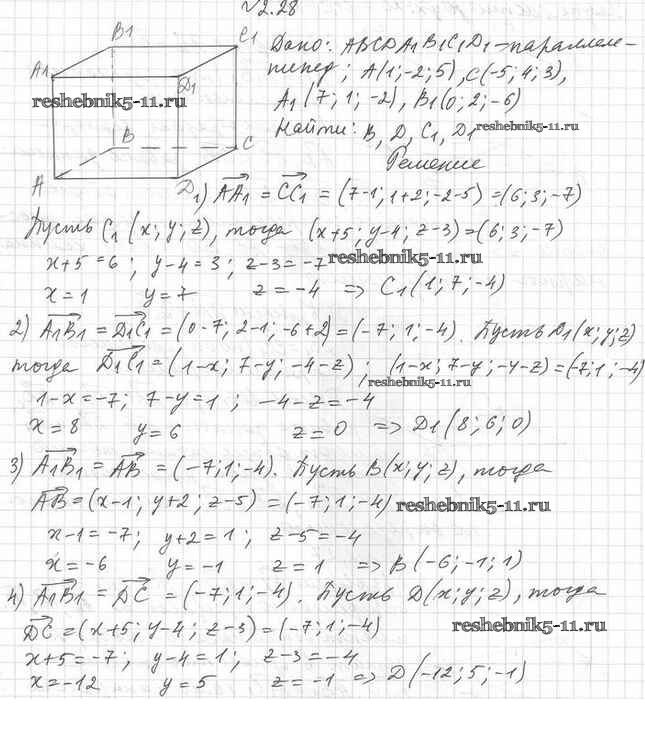 √2.28
B1 C1
A1 D1
B C
A D
Дано: ABCDA1B1C1D1 - параллеле-
пипед; A(1;-2;5), C(-5;4;3),
A1(7;1;-2), B1(0;2;-6)
reshebnik5-11.ru
Найти: B, D, C1, D1 reshebnik5-11.ru
Решение
1) AA1 = CC1 = (7-1; 1+2; -2-5) = (6; 3; -7)
Пусть C1 (x; y; z), тогда (x+5; y-4; z-3) = (6; 3; -7)
x+5=6; y-4=3; z-3=-7 reshebnik5-11.ru
x=1 y=7 z=-4 => C1(1; 7; -4)
2) A1B1 = D1C1 = (0-7; 2-1; -6+2) = (-7; 1; -4). Пусть D1(x; y; z)
тогда D1C1 = (1-x; 7-y; -4-z); (1-x; 7-y; -4-z) = (-7; 1; -4)
reshebnik5-11.ru
1-x=-7; 7-y=1; -4-z=-4
x=8 y=6 z=0 => D1(8; 6; 0)
3) A1B1 = AB = (-7; 1; -4). Пусть B(x; y; z), тогда
AB = (x-1; y+2; z-5) = (-7; 1; -4) reshebnik5-11.ru
x-1=-7; y+2=1; z-5=-4
x=-6 y=-1 z=1 => B(-6; -1; 1)
4) A1B1 = DC = (-7; 1; -4). Пусть D(x; y; z), тогда
DC = (x+5; y-4; z-3) = (-7; 1; -4) reshebnik5-11.ru
x+5=-7; y-4=1; z-3=-4
x=-12 y=5 z=-1 => D(-12; 5; -1)